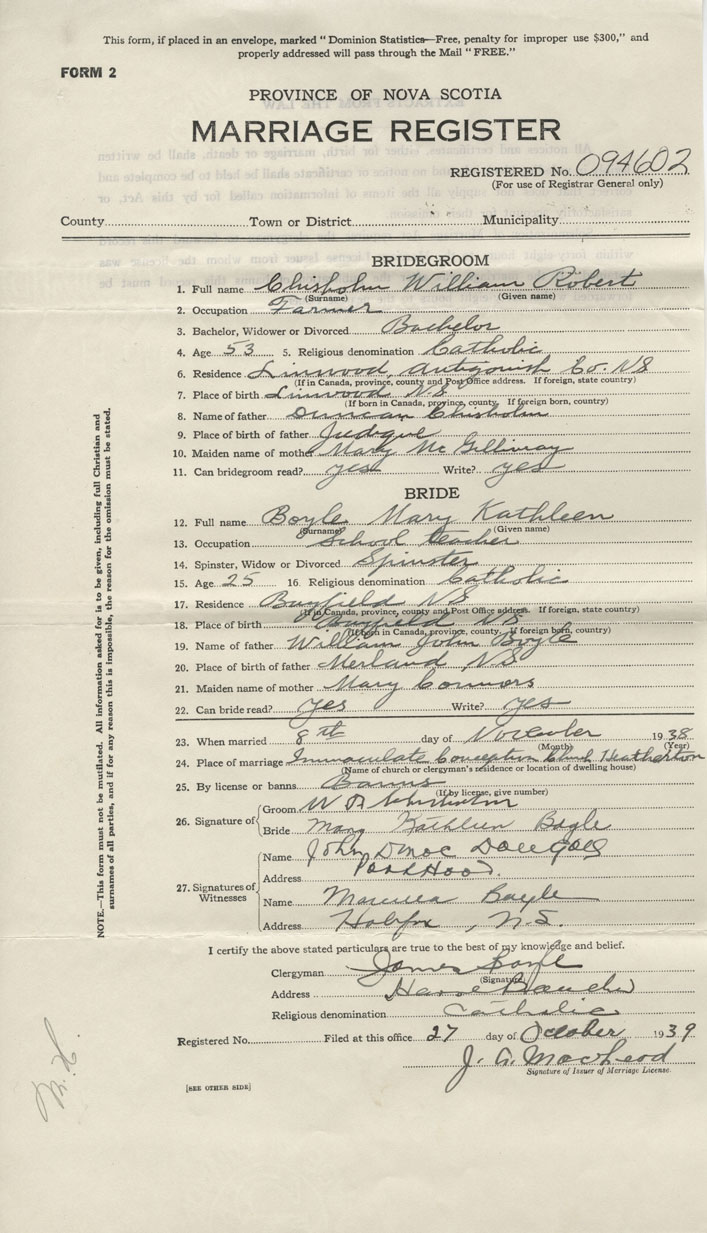 This form, if placed in an envelope, marked "Dominion Statistics—Free, penalty for improper use $300," and
properly addressed will pass through the Mail "FREE."
FORM 2
PROVINCE OF NOVA SCOTIA
MARRIAGE REGISTER
REGISTERED No. 094602
(For use of Registrar General only)
County Town or District Municipality
BRIDEGROOM
1. Full name Chisholm William Robert
(Surname) (Given name)
2. Occupation Farmer
3. Bachelor, Widower or Divorced Bachelor
4. Age 53 5. Religious denomination Catholic
6. Residence Linwood, Antigonish Co. NS
(If in Canada, province, county and Post Office address. If foreign, state country)
7. Place of birth Linwood NS
(If born in Canada, province, county. If foreign born, country)
8. Name of father Duncan Chisholm
9. Place of birth of father Judique
10. Maiden name of mother Mary McGillivray
11. Can bridegroom read? yes Write? yes
BRIDE
12. Full name Boyle Mary Kathleen
(Surname) (Given name)
13. Occupation School teacher
14. Spinster, Widow or Divorced Spinster
15. Age 25 16. Religious denomination Catholic
17. Residence Bayfield NS
(If in Canada, province, county and Post Office address. If foreign, state country)
18. Place of birth Bayfield NS
(If born in Canada, province, county. If foreign born, country)
19. Name of father William John Boyle
20. Place of birth of father Merland NS
21. Maiden name of mother Mary Connors
22. Can bride read? yes Write? yes
23. When married 8th day of November 1938
(Month) (Year)
24. Place of marriage Immaculate Conception Church Heatherton
(Name of church or clergyman's residence or location of dwelling house)
25. By license or banns Banns
(If by license, give number)
26. Signature of Groom W R Chisholm
Bride Mary Kathleen Boyle
27. Signatures of Witnesses
Name John
Address
Name Boyle
Address Halifax, N.S.
I certify the above stated particulars are true to the best of my knowledge and belief.
Clergyman James Boyle
(Signature)
Address Havre Boucher
Religious denomination Catholic
Registered No. Filed at this office 27 day of October 1939
J. A. MacLeod
Signature of Issuer of Marriage License.
[SEE OTHER SIDE]
NOTE.—This form must not be mutilated. All information asked for is to be given, including full Christian and
surnames of all parties, and if for any reason this is impossible, the reason for the omission must be stated.